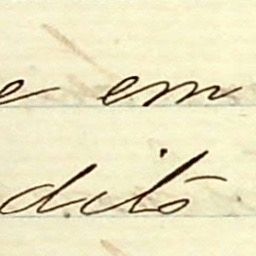 e em
ditô